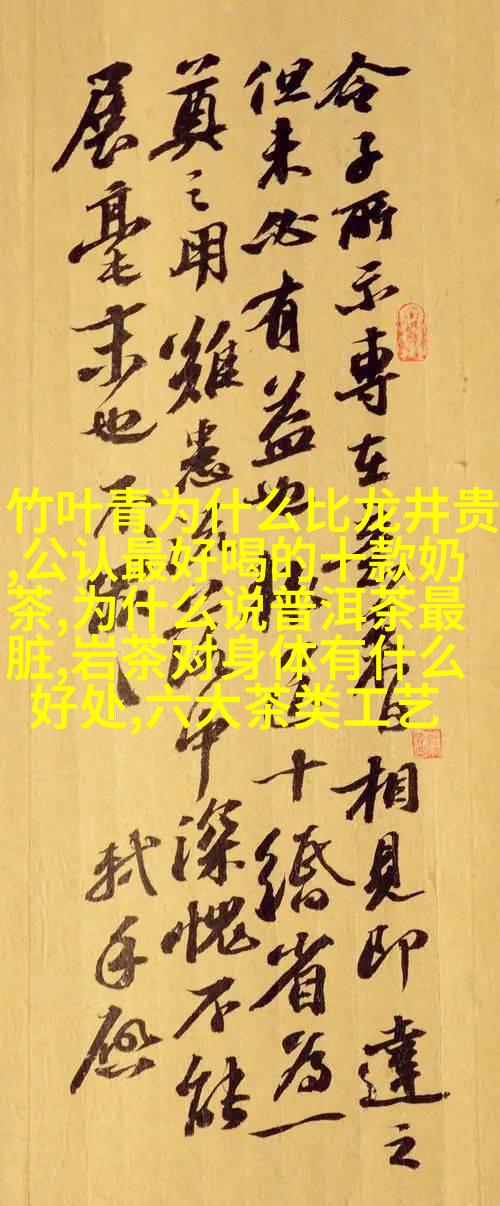 竹叶青为什么比龙井贵
,公认最好喝的十款奶
茶,为什么说普洱茶最
脏,岩茶对身体有什么
好处,六大茶类工艺
令子所示專在 相見即達之
但未必有益也 十縑省為一
奠之用難患 中深愧不能
展毫末也不
軾手啟